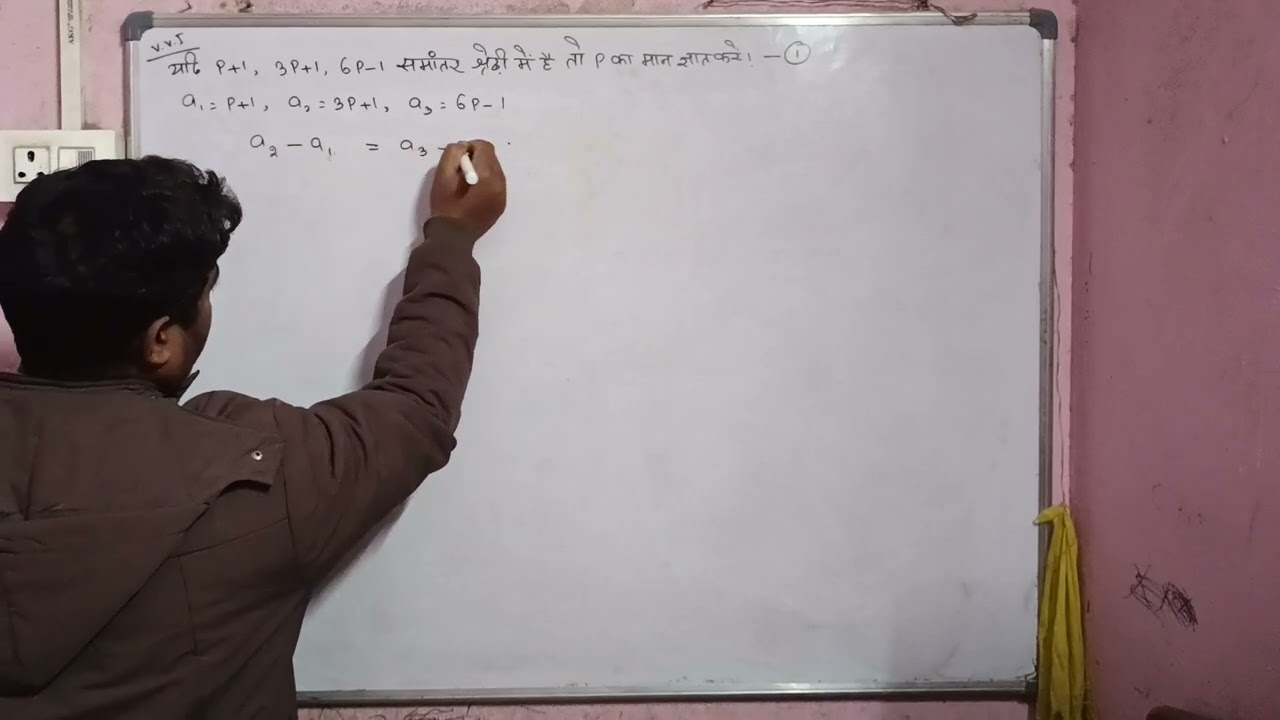 v.v.5
यदि P+1, 3P+1, 6P-1 समांतर श्रेढ़ी में है तो P का मान ज्ञात करे। - ①
a₁ = P+1, a₂ = 3P+1, a₃ = 6P-1
a₂ - a₁ = a₃ -